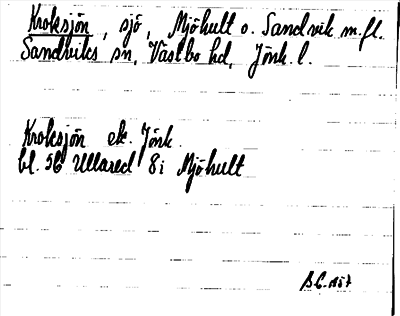 Kroksjön, sjö, Mjöhult o. Sandvik m.fl.
Sandviks sn, Västbo hd, Jönk. l.
Kroksjön ek. Jönk.
bl. 5C Ullared 8i Mjöhult